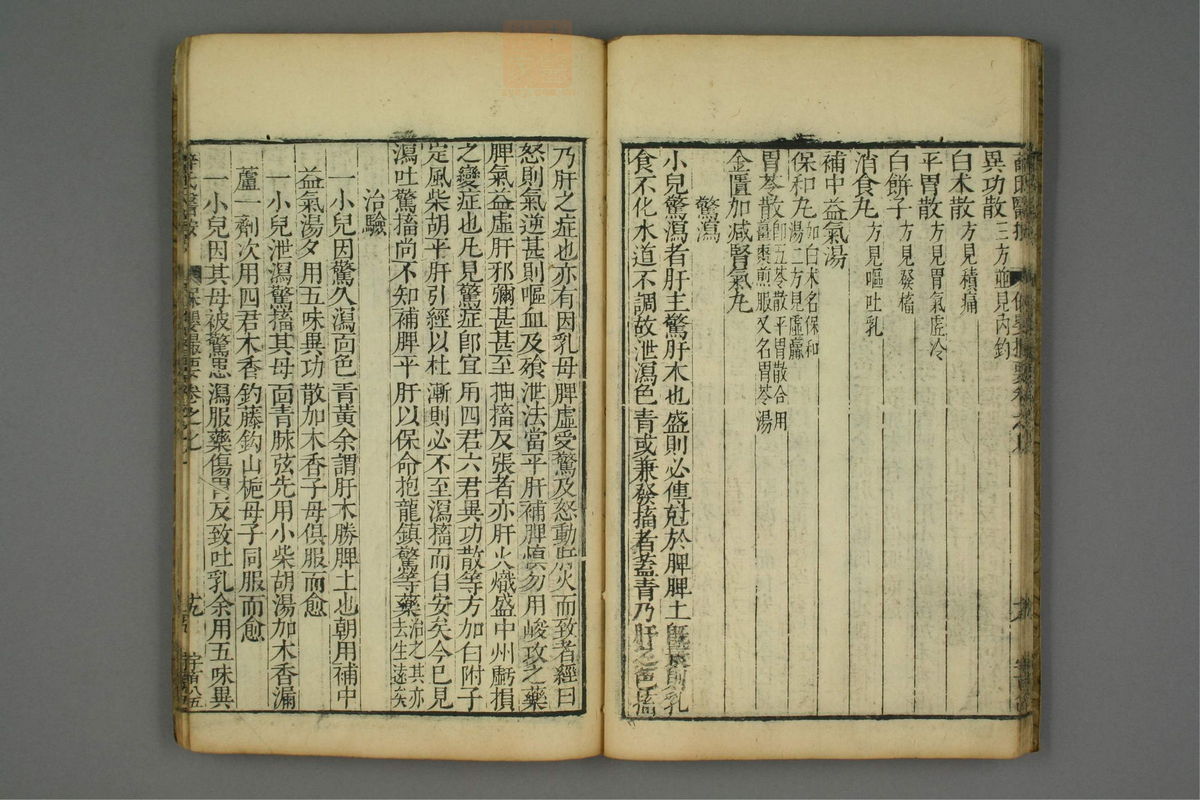 異功散三方並見內釣
白朮散方見積痛
平胃散方見胃氣虛冷
白餅子方見發搐
消食丸方見嘔吐乳
補中益氣湯
保和丸如白朮名保和湯二方見虛羸
胃苓散即五苓散平胃散合用薑棗煎服又名胃苓湯
金匱加減腎氣丸
驚瀉
小兒驚瀉者肝主驚肝木也盛則必傳尅於脾脾土既衰則乳
食不化水道不調故泄瀉色青或兼發搐者蓋青乃肝之色搐
乃肝之症也亦有因乳母脾虛受驚及怒動肝火而致者經曰
怒則氣逆甚則嘔血及飱泄法當平肝補脾慎勿用峻攻之藥
脾氣益虛肝邪彌甚甚至抽搐反張者亦肝火熾盛中州虧損
之變症也凡見驚症即宜用四君六君異功散等方加白附子
定風柴胡平肝引經以杜漸則必不至瀉搐而自安矣今已見
瀉吐驚搐尚不知補脾平肝以保命抱龍鎮驚等藥治之其亦去生遠矣
治驗
一小兒因驚久瀉面色青黃余謂肝木勝脾土也朝用補中
益氣湯夕用五味異功散加木香子母俱服而愈
一小兒泄瀉驚搐其母面青脉弦先用小柴胡湯加木香漏
蘆一劑次用四君木香釣藤鈎山梔母子同服而愈
一小兒因其母被驚患瀉服藥傷胃反致吐乳余用五味異
薛氏醫按
保嬰撮要卷之七